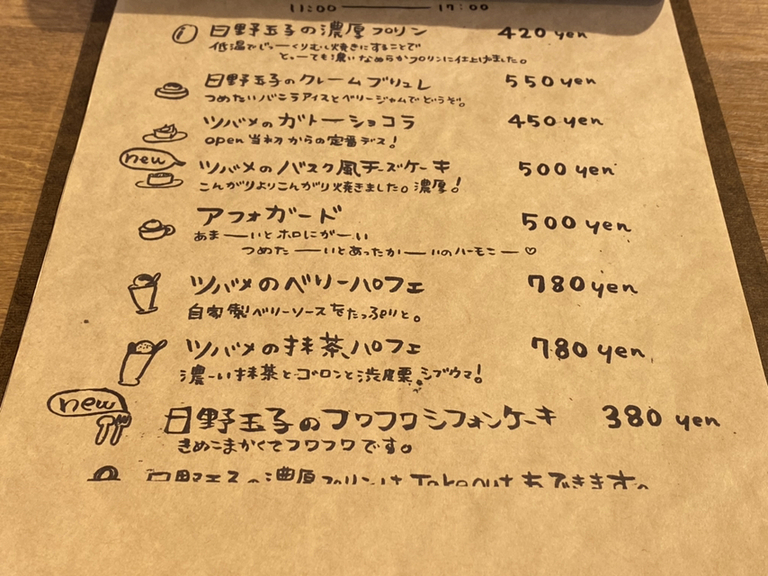 11:00 ——— 17:00
日野玉子の濃厚プリン 420 yen
低温でじっーくりむし焼きにすることで
とっーても濃いなめらかプリンに仕上げました。
日野玉子のクレームブリュレ 550 yen
つめたいバニラアイスとベリージャムでどうぞ。
ツバメのガトーショコラ 450 yen
open当初からの定番デス!
new
ツバメのバスク風チーズケーキ 500 yen
こんがりよりこんがり焼きました。濃厚!
アフォガード 500 yen
あまーいとホロにがーい
つめたーいとあったかーいのハーモニー♡
ツバメのベリーパフェ 780 yen
自家製ベリーソースをたっぷりと。
ツバメの抹茶パフェ 780 yen
濃ーい抹茶とゴロンと渋皮栗。シブウマ!
new
日野玉子のフワフワシフォンケーキ 380 yen
きめこまかくてフワフワです。
日野玉子の濃厚プリンは Takeout もできます。